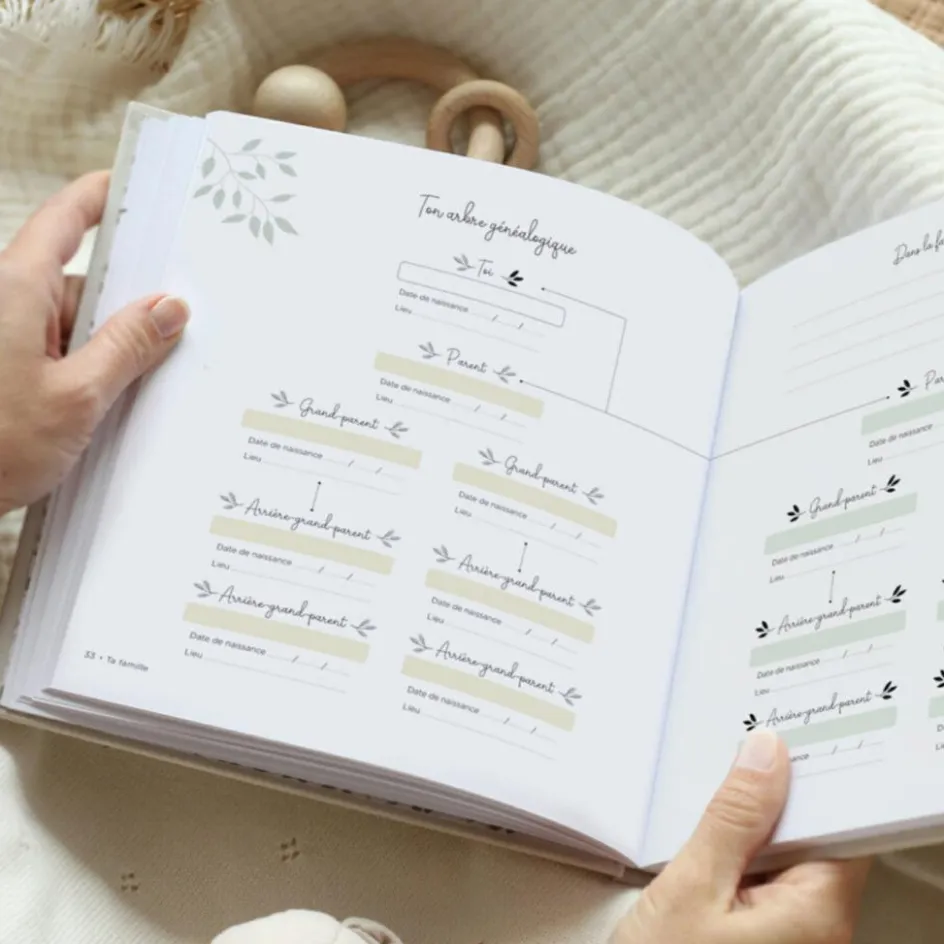 Ton arbre généalogique
Toi
Date de naissance / /
Lieu
Parent
Date de naissance / /
Lieu
Grand-parent
Date de naissance / /
Lieu
Arrière-grand-parent
Date de naissance / /
Lieu
Arrière-grand-parent
Date de naissance / /
Lieu
Grand-parent
Date de naissance / /
Lieu
Arrière-grand-parent
Date de naissance / /
Lieu
Arrière-grand-parent
Date de naissance / /
Lieu
33 • Ta famille
Dans la
Date de naissance
Lieu
Grand-parent
Date de naissance / /
Lieu
Arrière-grand-parent
Date de naissance / /
Lieu
Arrière-grand-parent
/ /